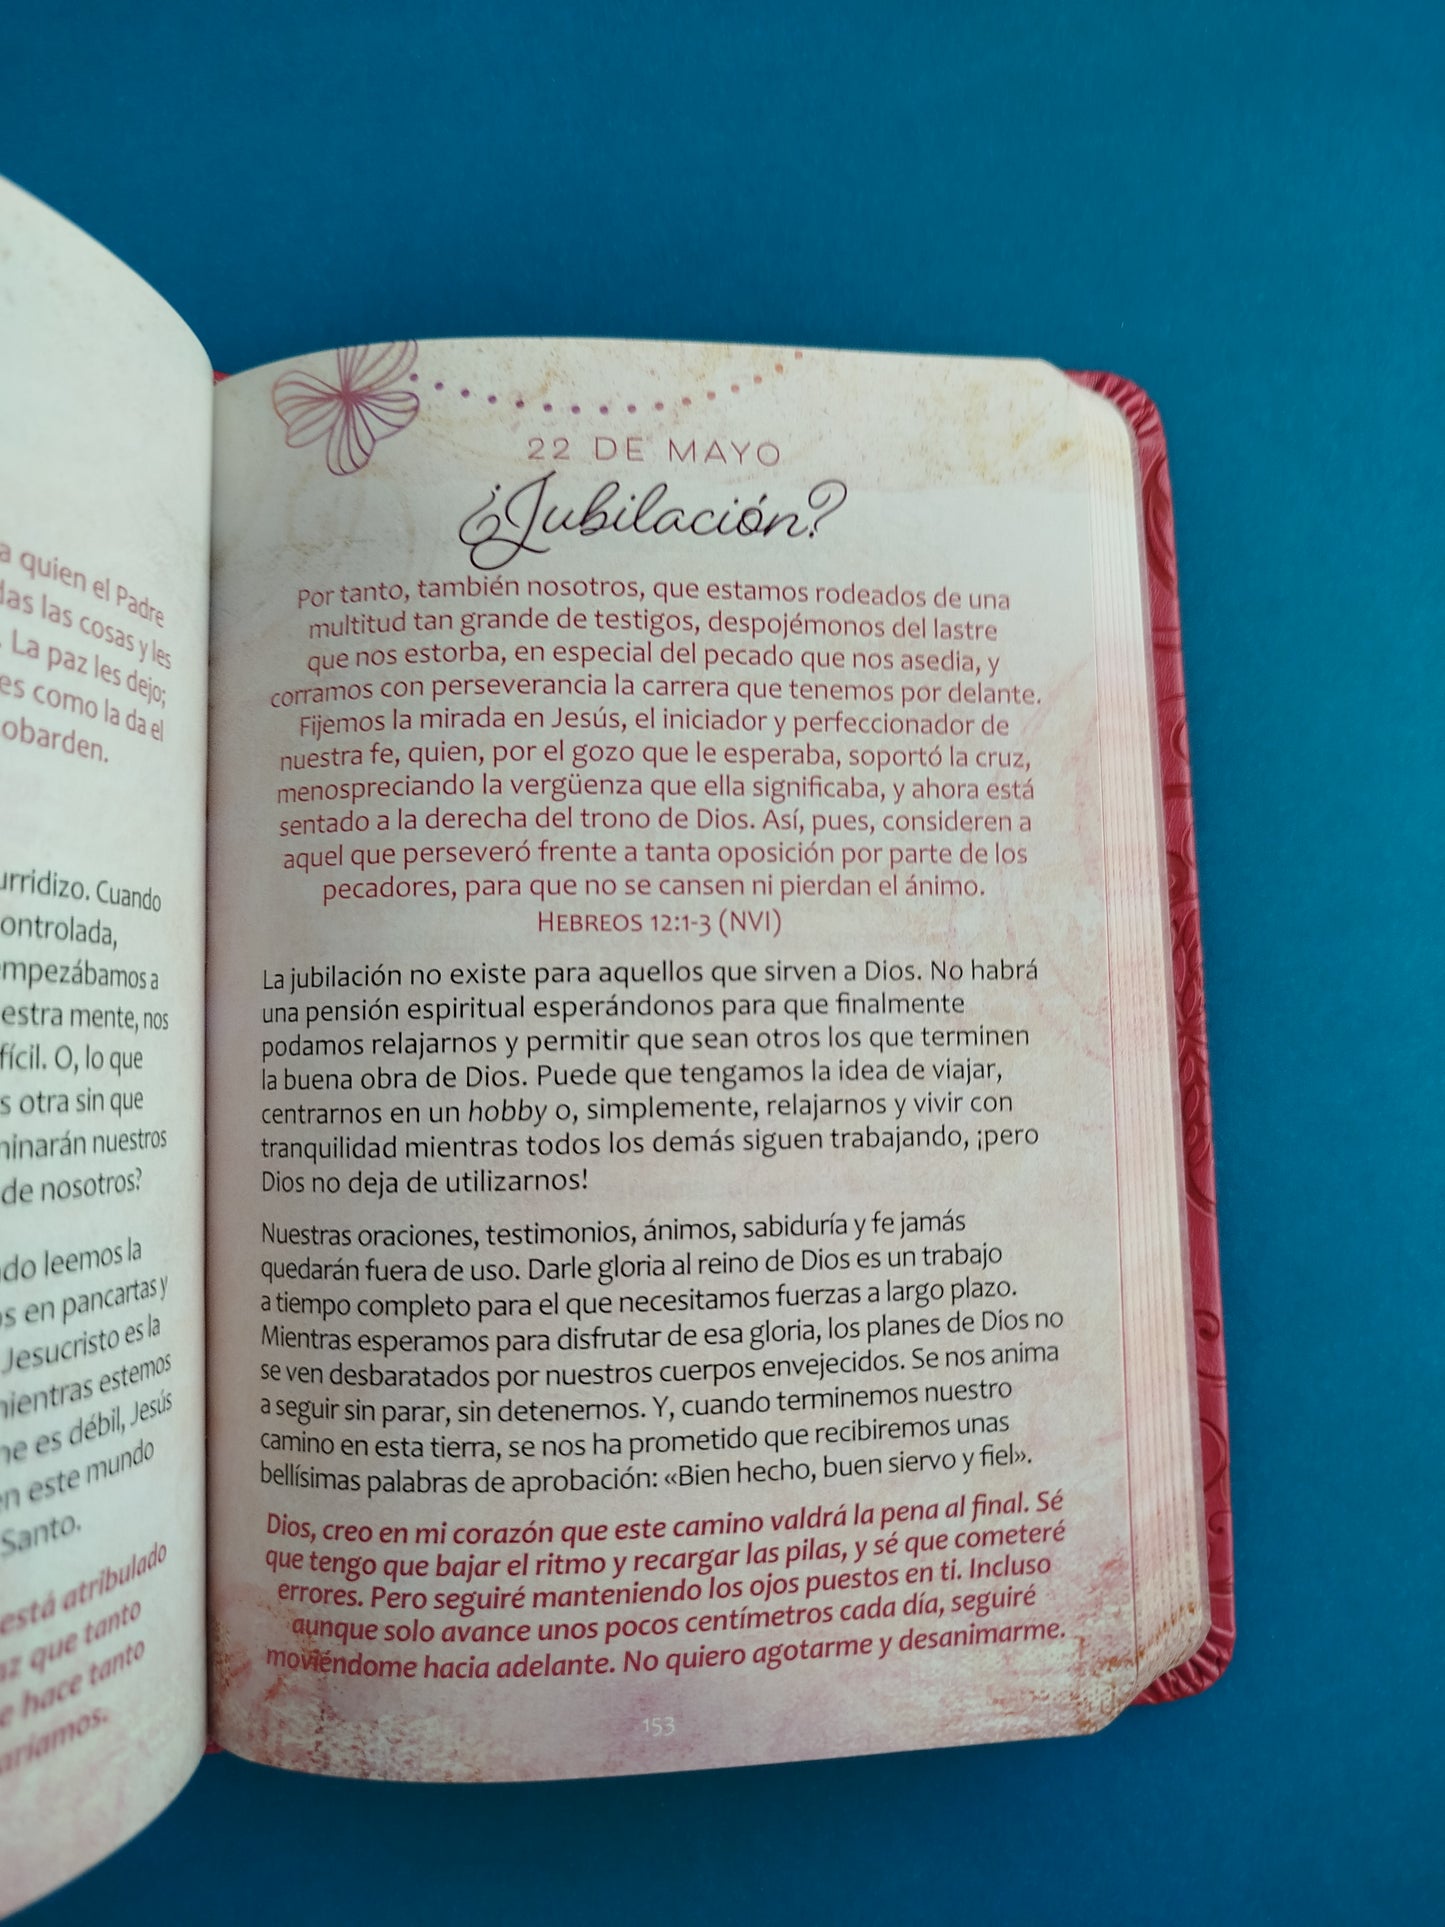 a quien el Padre
las cosas y les
La paz les dejo;
como la da el
Cuando
mente, nos
O, lo que
otra sin que
nuestros
de nosotros?
leemos la
en pancartas y
Jesucristo es la
estemos
es débil, Jesús
en este mundo
Santo.
está atribulado
que tanto
hace tanto
22 DE MAYO
¿Jubilación?
Por tanto, también nosotros, que estamos rodeados de una
multitud tan grande de testigos, despojémonos del lastre
que nos estorba, en especial del pecado que nos asedia, y
corramos con perseverancia la carrera que tenemos por delante.
Fijemos la mirada en Jesús, el iniciador y perfeccionador de
nuestra fe, quien, por el gozo que le esperaba, soportó la cruz,
menospreciando la vergüenza que ella significaba, y ahora está
sentado a la derecha del trono de Dios. Así, pues, consideren a
aquel que perseveró frente a tanta oposición por parte de los
pecadores, para que no se cansen ni pierdan el ánimo.
HEBREOS 12:1-3 (NVI)
La jubilación no existe para aquellos que sirven a Dios. No habrá
una pensión espiritual esperándonos para que finalmente
podamos relajarnos y permitir que sean otros los que terminen
la buena obra de Dios. Puede que tengamos la idea de viajar,
centrarnos en un hobby o, simplemente, relajarnos y vivir con
tranquilidad mientras todos los demás siguen trabajando, ¡pero
Dios no deja de utilizarnos!
Nuestras oraciones, testimonios, ánimos, sabiduría y fe jamás
quedarán fuera de uso. Darle gloria al reino de Dios es un trabajo
a tiempo completo para el que necesitamos fuerzas a largo plazo.
Mientras esperamos para disfrutar de esa gloria, los planes de Dios no
se ven desbaratados por nuestros cuerpos envejecidos. Se nos anima
a seguir sin parar, sin detenernos. Y, cuando terminemos nuestro
camino en esta tierra, se nos ha prometido que recibiremos unas
bellísimas palabras de aprobación: «Bien hecho, buen siervo y fiel».
Dios, creo en mi corazón que este camino valdrá la pena al final. Sé
que tengo que bajar el ritmo y recargar las pilas, y sé que cometeré
errores. Pero seguiré manteniendo los ojos puestos en ti. Incluso
aunque solo avance unos pocos centímetros cada día, seguiré
moviéndome hacia adelante. No quiero agotarme y desanimarme.
153